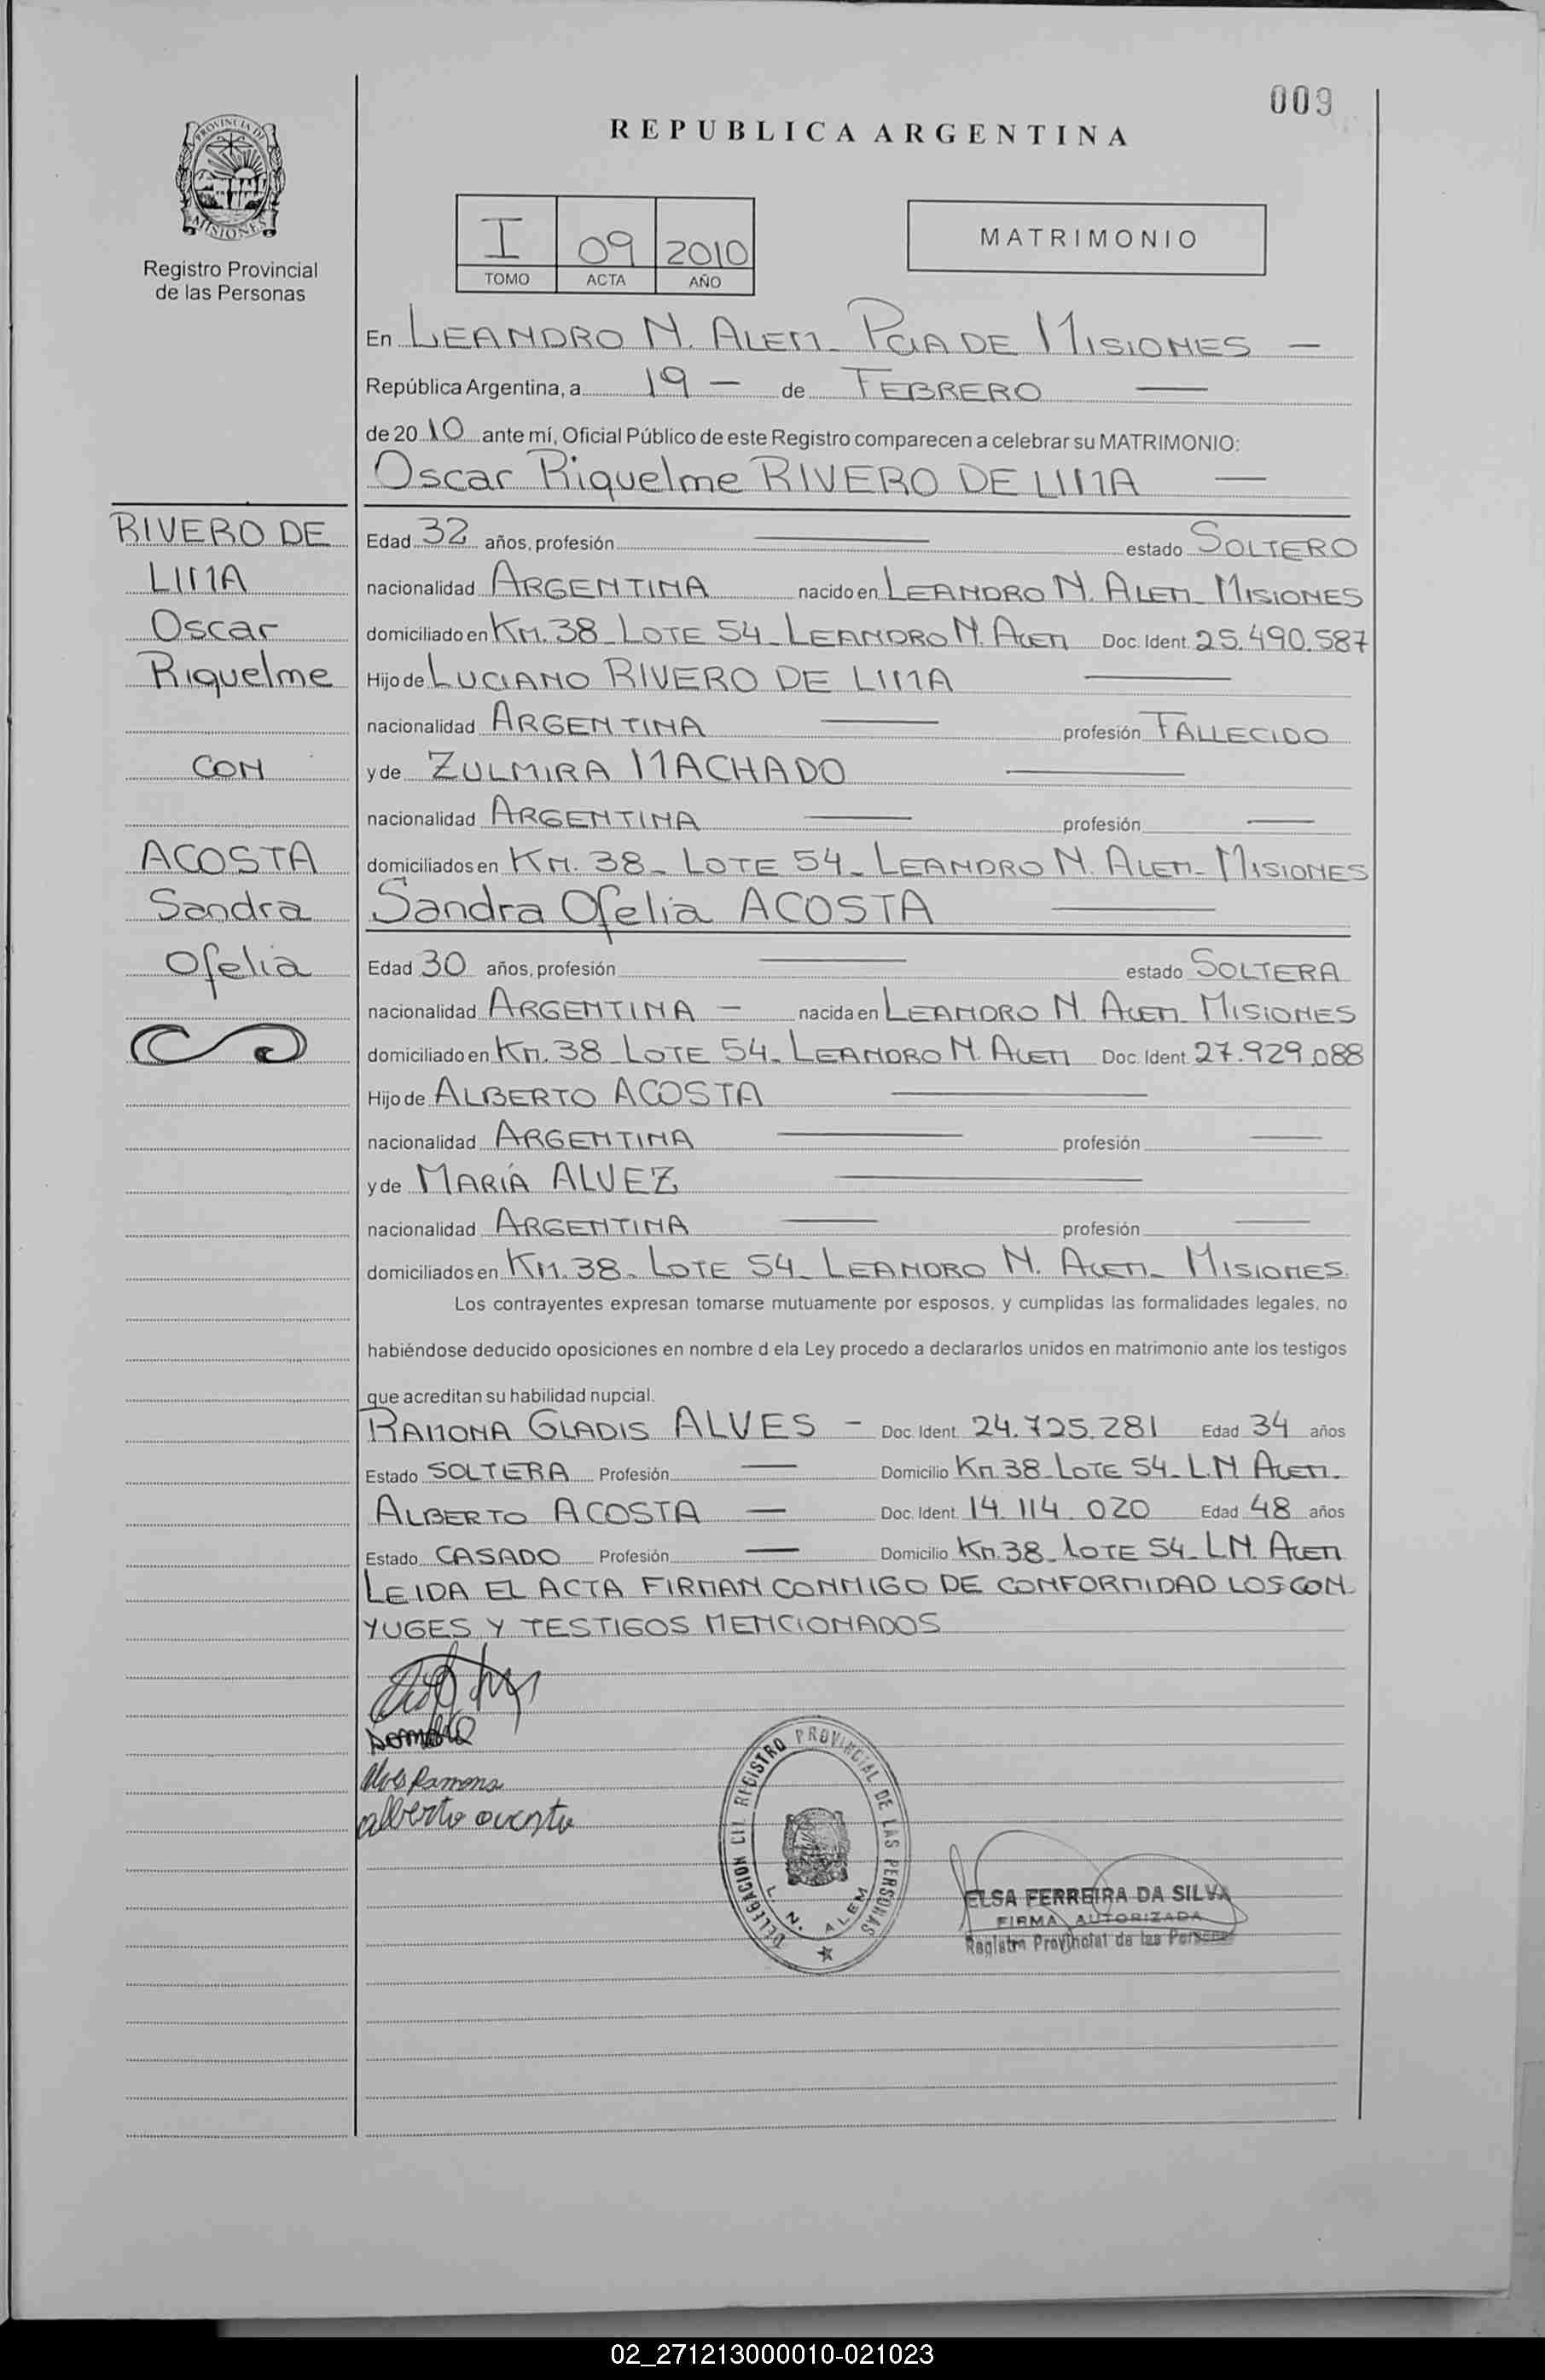 009
REPUBLICA ARGENTINA
PROVINCIA DE MISIONES
Registro Provincial
de las Personas
I 09 2010
TOMO ACTA AÑO
MATRIMONIO
En LEANDRO N. ALEM - PCIA DE MISIONES —
República Argentina, a 19 — de FEBRERO —
de 20 10 ante mí, Oficial Público de este Registro comparecen a celebrar su MATRIMONIO:
Oscar Riquelme RIVERO DE LIMA —
RIVERO DE
LIMA
Oscar
Riquelme
CON
ACOSTA
Sandra
Ofelia
Edad 32 años, profesión — estado SOLTERO
nacionalidad ARGENTINA nacido en LEANDRO N. ALEM - MISIONES
domiciliado en KM. 38 - LOTE 54 - LEANDRO N. ALEM Doc. Ident. 25.490.587
Hijo de LUCIANO RIVERO DE LIMA —
nacionalidad ARGENTINA — profesión FALLECIDO
y de ZULMIRA MACHADO —
nacionalidad ARGENTINA — profesión —
domiciliados en KM. 38 - LOTE 54 - LEANDRO N. ALEM - MISIONES
Sandra Ofelia ACOSTA —
Edad 30 años, profesión — estado SOLTERA
nacionalidad ARGENTINA — nacida en LEANDRO N. ALEM - MISIONES
domiciliado en KM. 38 - LOTE 54 - LEANDRO N. ALEM Doc. Ident. 27.929.088
Hijo de ALBERTO ACOSTA —
nacionalidad ARGENTINA — profesión —
y de MARÍA ALVEZ —
nacionalidad ARGENTINA — profesión —
domiciliados en KM. 38 - LOTE 54 - LEANDRO N. ALEM - MISIONES.
Los contrayentes expresan tomarse mutuamente por esposos, y cumplidas las formalidades legales, no
habiéndose deducido oposiciones en nombre d ela Ley procedo a declararlos unidos en matrimonio ante los testigos
que acreditan su habilidad nupcial.
RAMONA GLADIS ALVES — Doc. Ident. 24.725.281 Edad 34 años
Estado SOLTERA Profesión — Domicilio KM. 38 - LOTE 54 - L.N ALEM.
ALBERTO ACOSTA — Doc. Ident. 14.114.020 Edad 48 años
Estado CASADO Profesión — Domicilio KM. 38 - LOTE 54 - L.N. ALEM
LEIDA EL ACTA FIRMAN CONMIGO DE CONFORMIDAD LOS CON
YUGES Y TESTIGOS MENCIONADOS
Alves Ramona
alberto acosta
REGISTRO PROVINCIAL DE LAS PERSONAS
L. N. ALEM
ELSA FERREIRA DA SILVA
FIRMA AUTORIZADA
Registro Provincial de las Personas
02_271213000010-021023